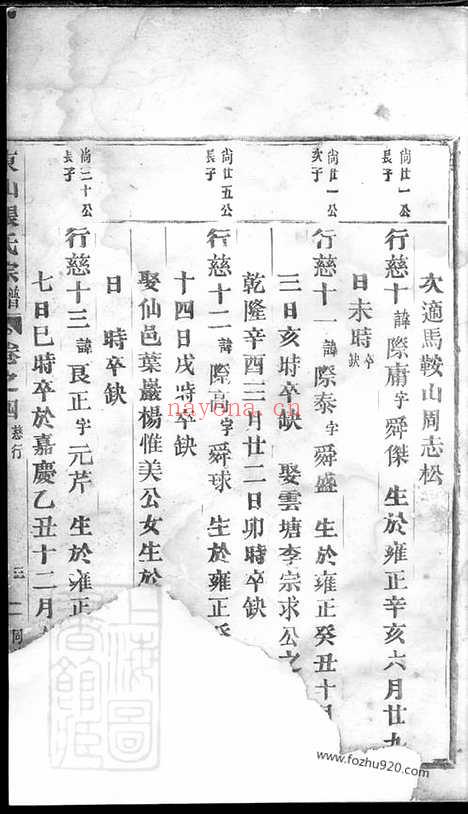 次適馬鞍山周志松
尚廿一公長子
行慈十 諱際庸字舜傑 生於雍正辛亥六月廿九
日未時卒缺
尚廿一公次子
行慈十一 諱際泰字舜盛 生於雍正癸丑十月
三日亥時卒缺 娶雲塘李宗求公之
乾隆辛酉三月廿二日卯時卒缺
尚廿五公長子
行慈十二 諱際高字舜球 生於雍正
十四日戌時卒缺
娶仙邑葉巖楊惟美公女生於
日 時卒缺
尚三十公長子
行慈十三 諱良正字元芹 生於雍正
七日巳時卒於嘉慶乙丑十二月
東山張氏宗譜 卷之四 慈行
nayena.com
www.fozhu920.com